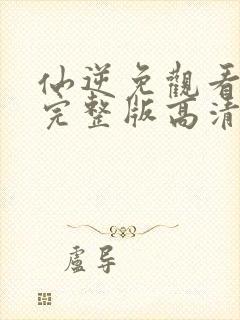 仙逆免觀看
完整版高清
盧导